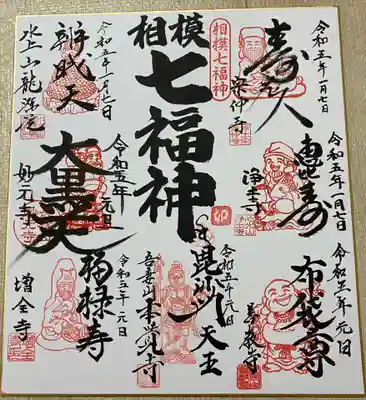 令和五年一月七日
寿老人
宗仲寺
令和五年一月七日
恵比寿
浄土寺
令和五年元日
布袋尊
善教寺
相模七福神
相模
七福神
卯
令和五年元日
毘沙門天王
吾妻山本覚寺
令和五年一月七日
辨財天
水上山龍源院
令和五年元日
大黒天
妙元寺
令和五年元日
福禄寿
増全寺